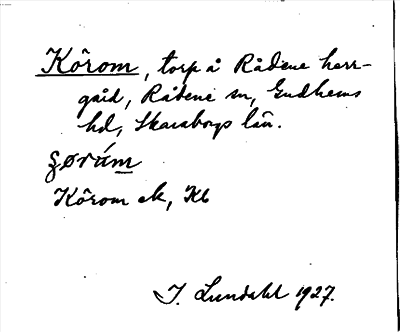 Kôrom, torp å Rådene herr-
gård, Rådene sn, Gudhems
hd, Skaraborgs län.
ʂørúm
Kôrom ek, Kb
I. Lundahl 1927.